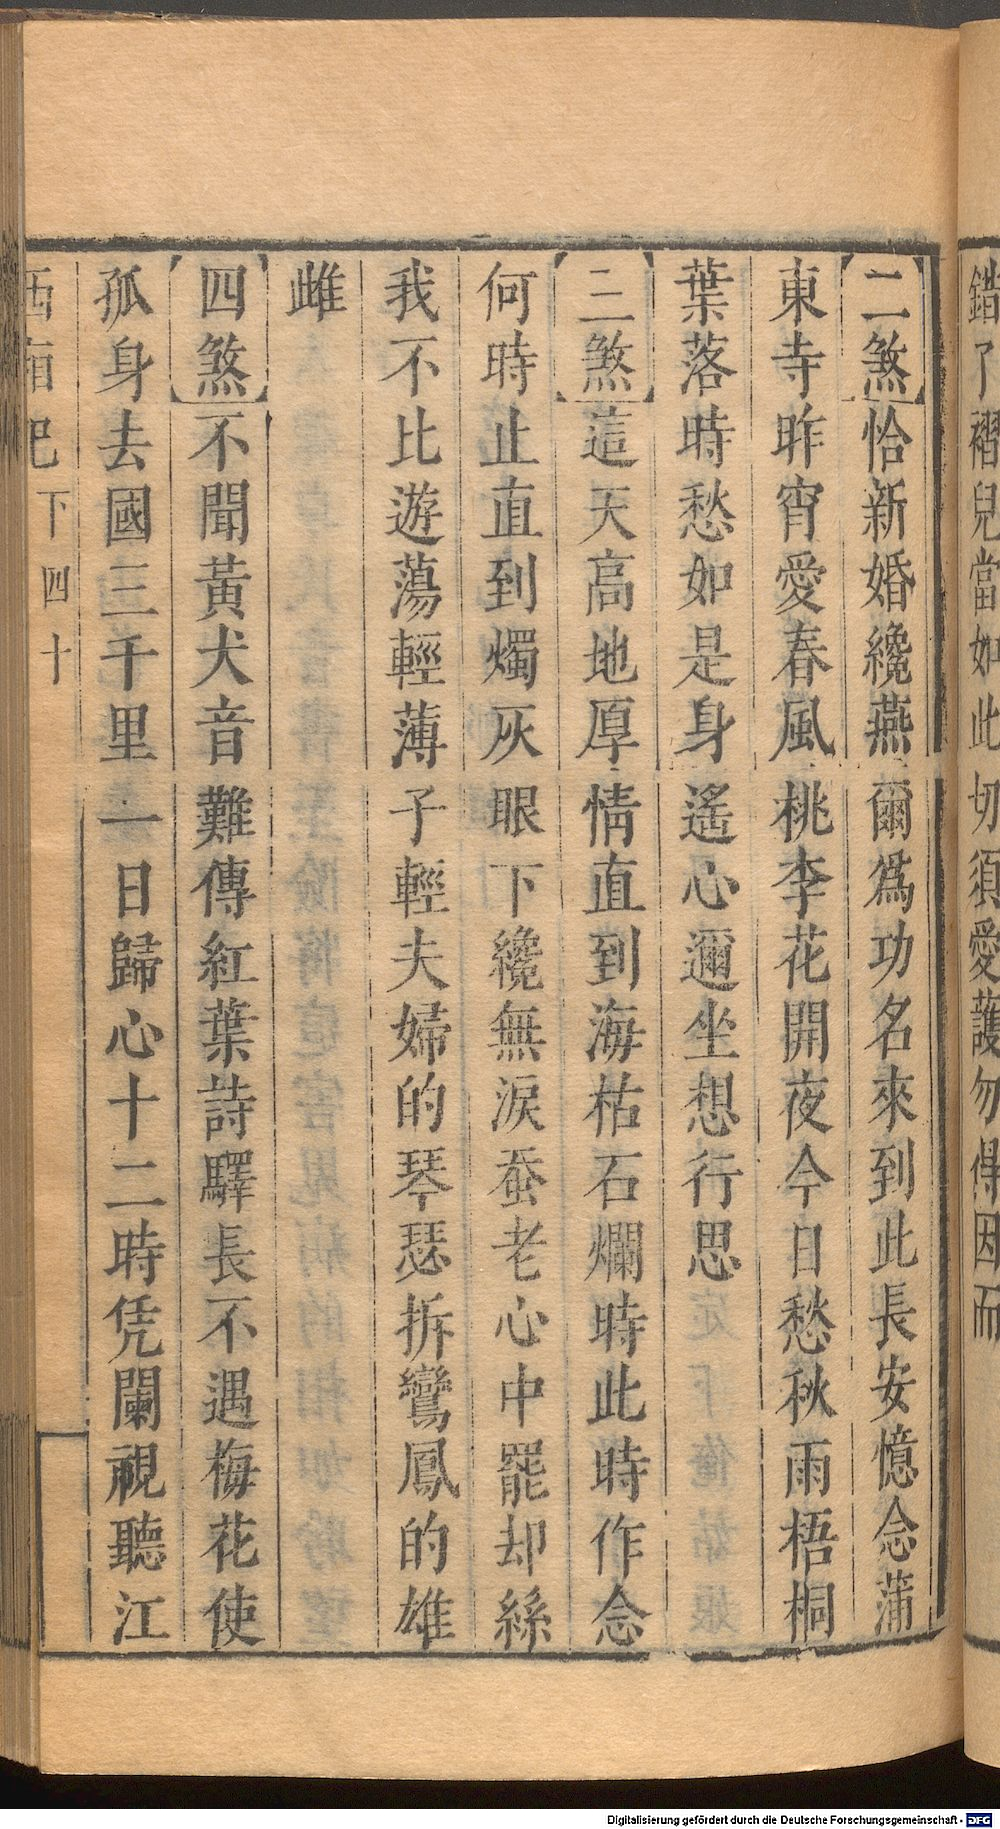 錯了褶兒當如此切須愛護勿得因而
二煞恰新婚纔燕爾爲功名來到此長安憶念蒲
東寺昨宵愛春風桃李花開夜今日愁秋雨梧桐
葉落時愁如是身遙心邇坐想行思
三煞這天高地厚情直到海枯石爛時此時作念
何時止直到燭灰眼下纔無淚蚕老心中罷却絲
我不比遊蕩輕薄子輕夫婦的琴瑟拆鸞鳳的雄
雌
四煞不聞黃犬音難傳紅葉詩驛長不遇梅花使
孤身去國三千里一日歸心十二時凭闌視聽江
西廂記 下 四十
Digitalisierung gefördert durch die Deutsche Forschungsgemeinschaft - DFG